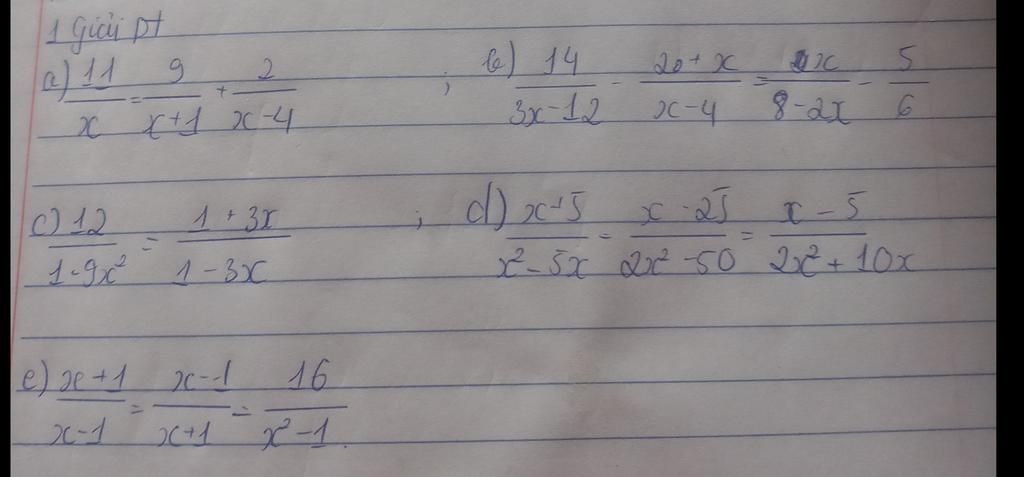 1 Giải pt
a) 11/x = 9/(x+1) + 2/(x-4) ; b) 14/(3x-12) - (20+x)/(x-4) = x/(8-2x) - 5/6
c) 12/(1-9x²) = (1+3x)/(1-3x) ; d) (x+5)/(x²-5x) = (x-25)/(2x²-50) = (x-5)/(2x²+10x)
e) (x+1)/(x-1) = (x-1)/(x+1) = 16/(x²-1).